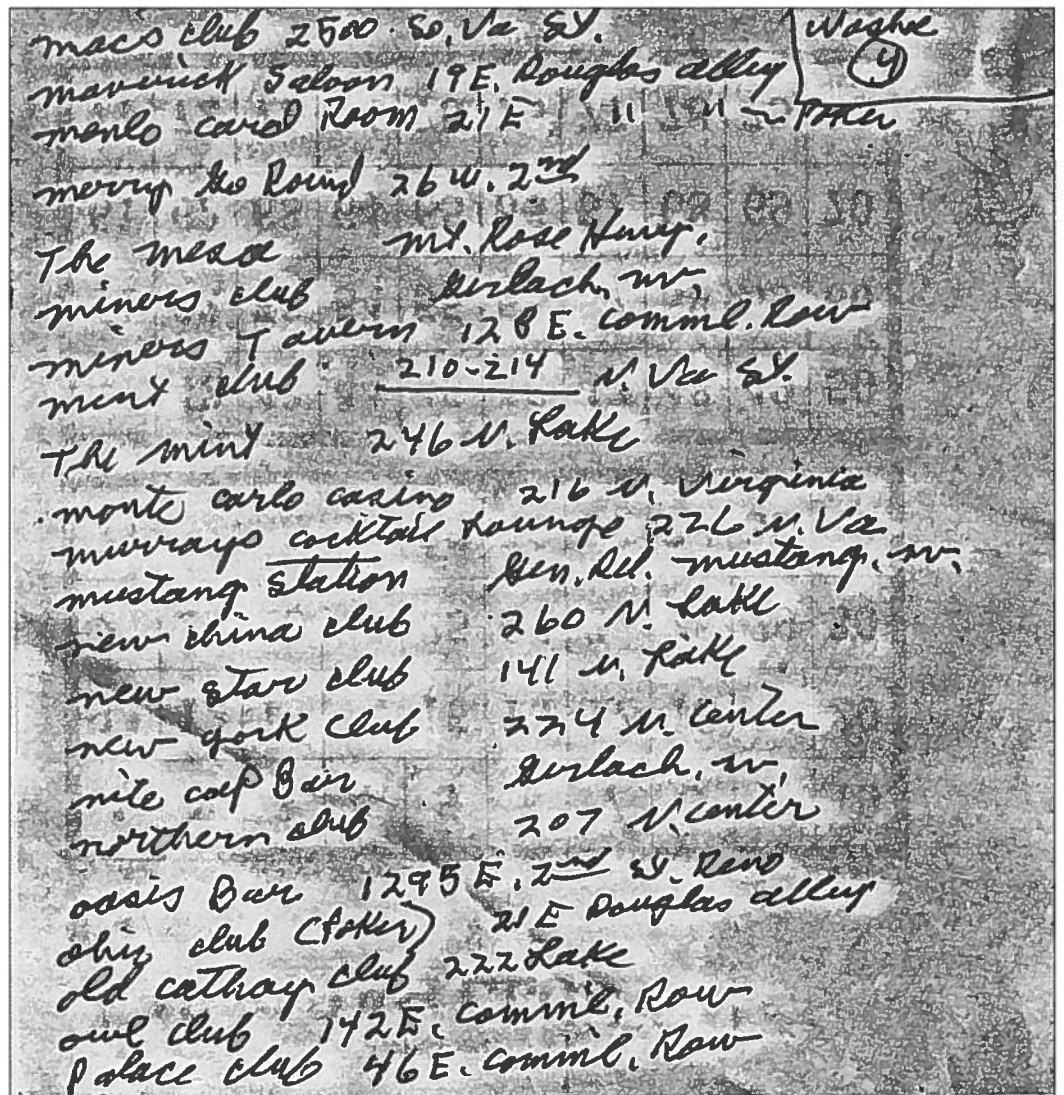 macs club 2500. So. Va St.
Washoe
4
maverick Saloon 19 E. Douglas alley
menlo card Room 21 E " " " ~ Poker
merry Go Round 26 W. 2nd
The mesa mt. Rose Hwy.
miners club Gerlach, nv.
miners Tavern 128 E. comml. Row
mint club 210-214 N. Va St.
The mint 246 N. Lake
monte carlo casino 216 N. Virginia
murrays cocktail Lounge 226 N. Va
mustang Station Gen. Del. mustang, nv.
new china club 260 N. Lake
new star club 141 N. Lake
new york club 224 N. center
nite cap Bar Gerlach, nv.
northern club 207 N. center
oasis Bar 1295 E. 2nd St. Reno
ohio club (Poker) 21 E Douglas alley
old cathay club 222 Lake
owl club 142 E. comml. Row
Palace club 46 E. comml. Row